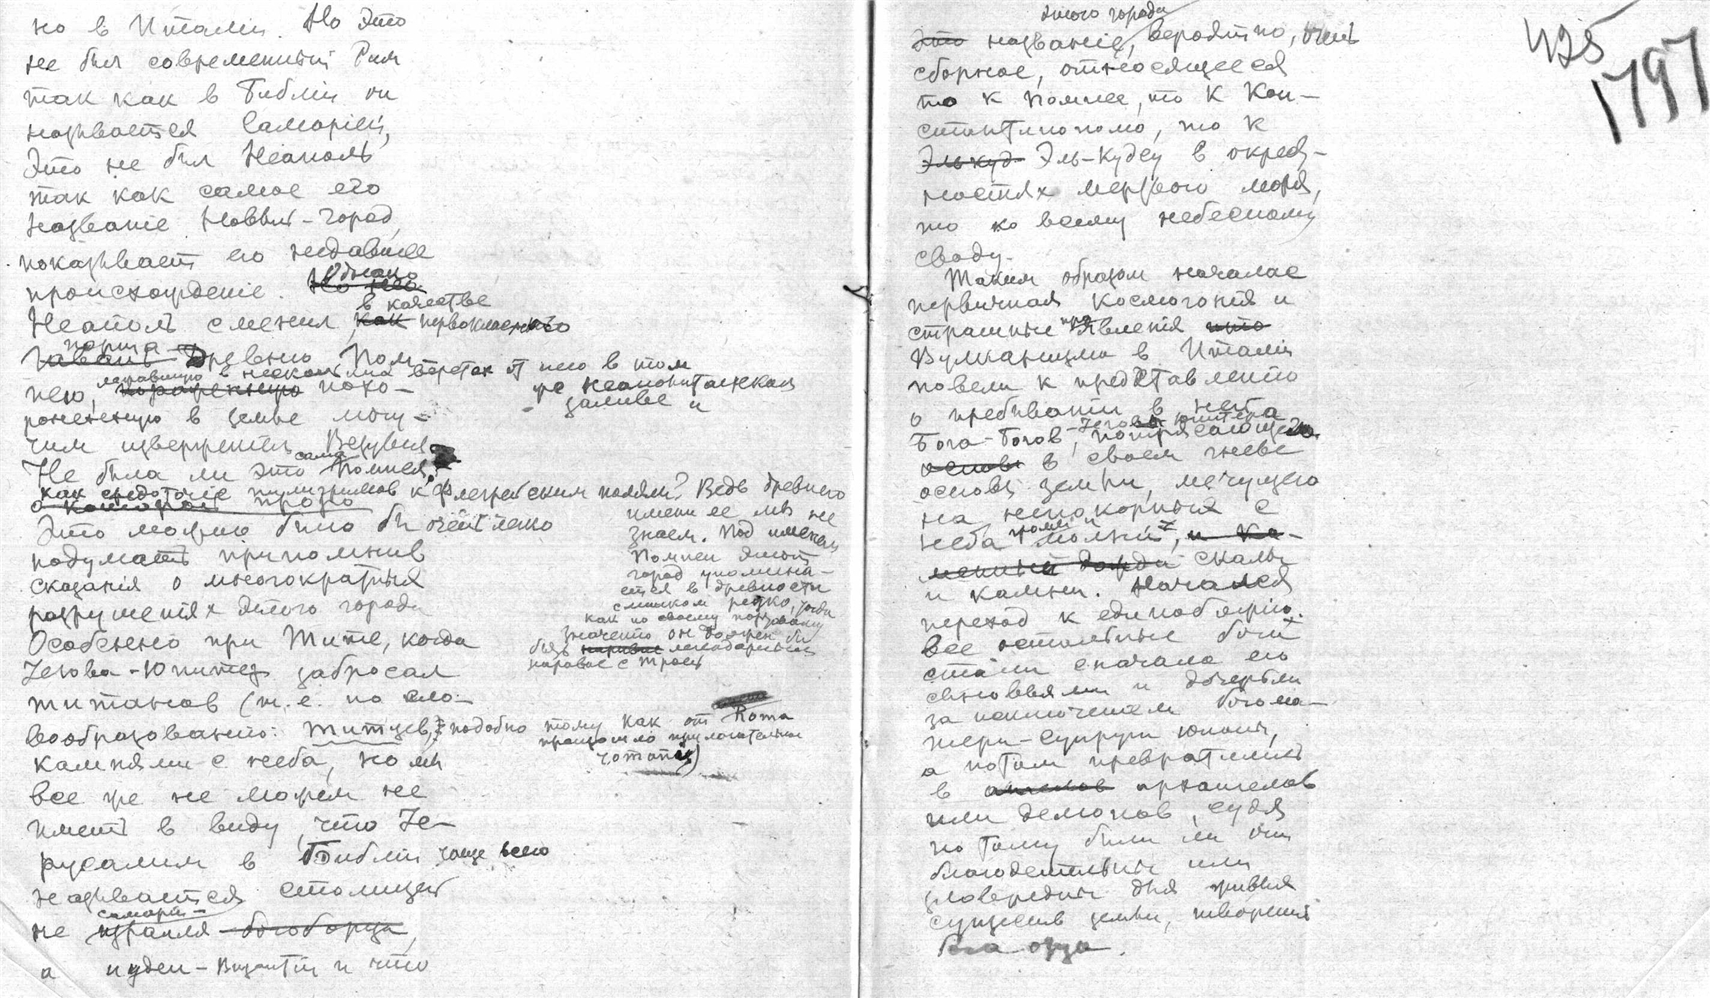 но в Италіи. Но это
не был современный Рим
так как в Библіи он
называется Самаріей,
Это не был Неаполь
так как самое его
названіе Новый-город,
показывает его недавнее
происхожденіе. Однако
Неаполь сменил в качестве первокласснаго
порта древнюю Пом-
пею, лежавшую в нескольких верстах от него в том
же Неаполитанском
заливе и похо-
роненную в земле могу-
чим изверженіем Везувія.
Не была ли это сама Помпея,
как средоточіе пилигримов к Флегрейским полям? Ведь древняго
имени ее мы не
знаем. Под именем
Помпеи этот
город упомина-
ется в древности
слишком редко, тогда
как по своему
значенію он должен бы
быть легендарным
наравне с Троей
Это можно было бы очень легко
подумать припомнив
сказанія о многократных
разрушеніях этого города
Особенно при Тите, когда
Іегова-Юпитер забросал
титанов (т.е. по сло-
вообразованію: титцев, подобно тому как от Roma
произошло прилагательное
romanus)
камнями с неба, но мы
все же не можем не
иметь в виду, что Іе-
русалим в Библіи чаще всего
называется столицей
не самари-
израиля богоборца,
а иудеи-Византіи и что
этого города
это названіе, вероятно, очень
сборное, относящееся
то к Помпее, то к Кон-
стантинополю, то к
Эль-куд Эль-Кудсу в окрест-
ностях мертваго моря,
то ко всему небесному
своду.
Таким образом началась
первичная космогонія и
страшные проявленія
вулканизма в Италіи
повели к представленію
о пребываніи в неба
Бога-Богов, Іеговы Юпитера потрясающего
в своем гневе
основы земли, мечущего
на непокорных с
неба громы и молніи, и ка-
менный дождь скалы
и камни. Начался
переход к единобожію.
Все остальные боги
стали сначала его
сыновьями и дочерьми
за исключением богома-
тери-супруги юноны,
а потом превратились
в ангелов архангелов
или демонов, судя
по тому были ли они
благодетельны или
зловредны для живых
существ земли, твореній
Бога отца.
425
1797